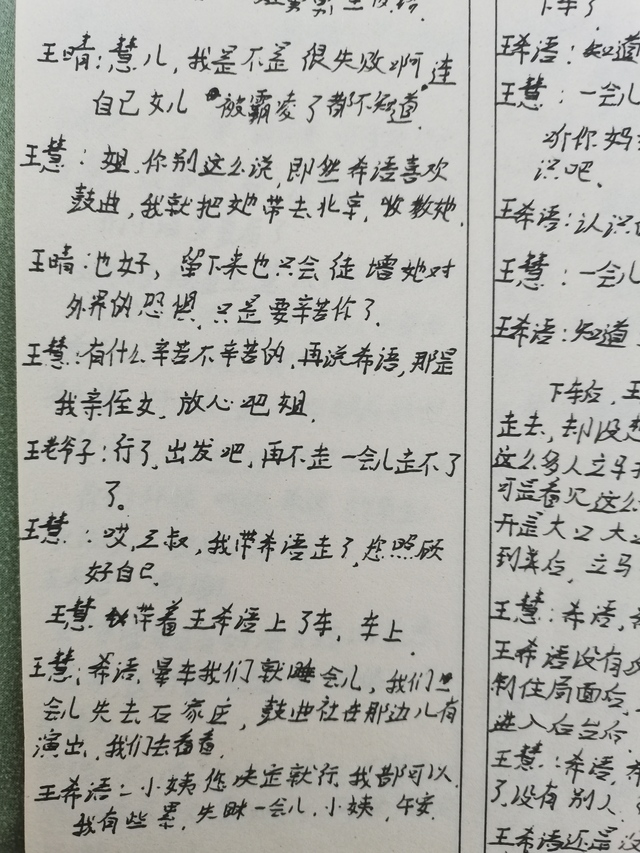 王晴：慧儿，我是不是很失败啊连
自己女儿被霸凌了都不知道
王慧：姐，你别这么说，即然希语喜欢
鼓曲，我就把她带去北京，收教她.
王晴：也好，留下来也只会徒增她对
外界的恐惧，只是要辛苦你了.
王慧：有什么辛苦不辛苦的，再说希语，那是
我亲侄女，放心吧姐.
王老爷子：行了，出发吧，再不走一会儿走不了
了。
王慧：哎，三叔，我带希语走了，您照顾
好自己.
王慧带着王希语上了车，车上.
王慧：希语，晕车我们就睡会儿，我们一
会儿先去石家庄，鼓曲社在那边儿有
演出，我们去看看.
王希语：小姨您决定就行我都可以.
我有些累，先眯一会儿，小姨，午安.
下车了
王希语：知道
王慧：一会儿
你妈
识吧、
王希语：认识
王慧：一会儿
王希语：知道
下车后，王
走去，却没想
这么多人立马
可是看见这么
开是大口大口
到身后，立马
王慧：希语，
王希语没有
制住局面后，
进入后台后，
王慧：希语，
了，没有别人，
王希语还是没